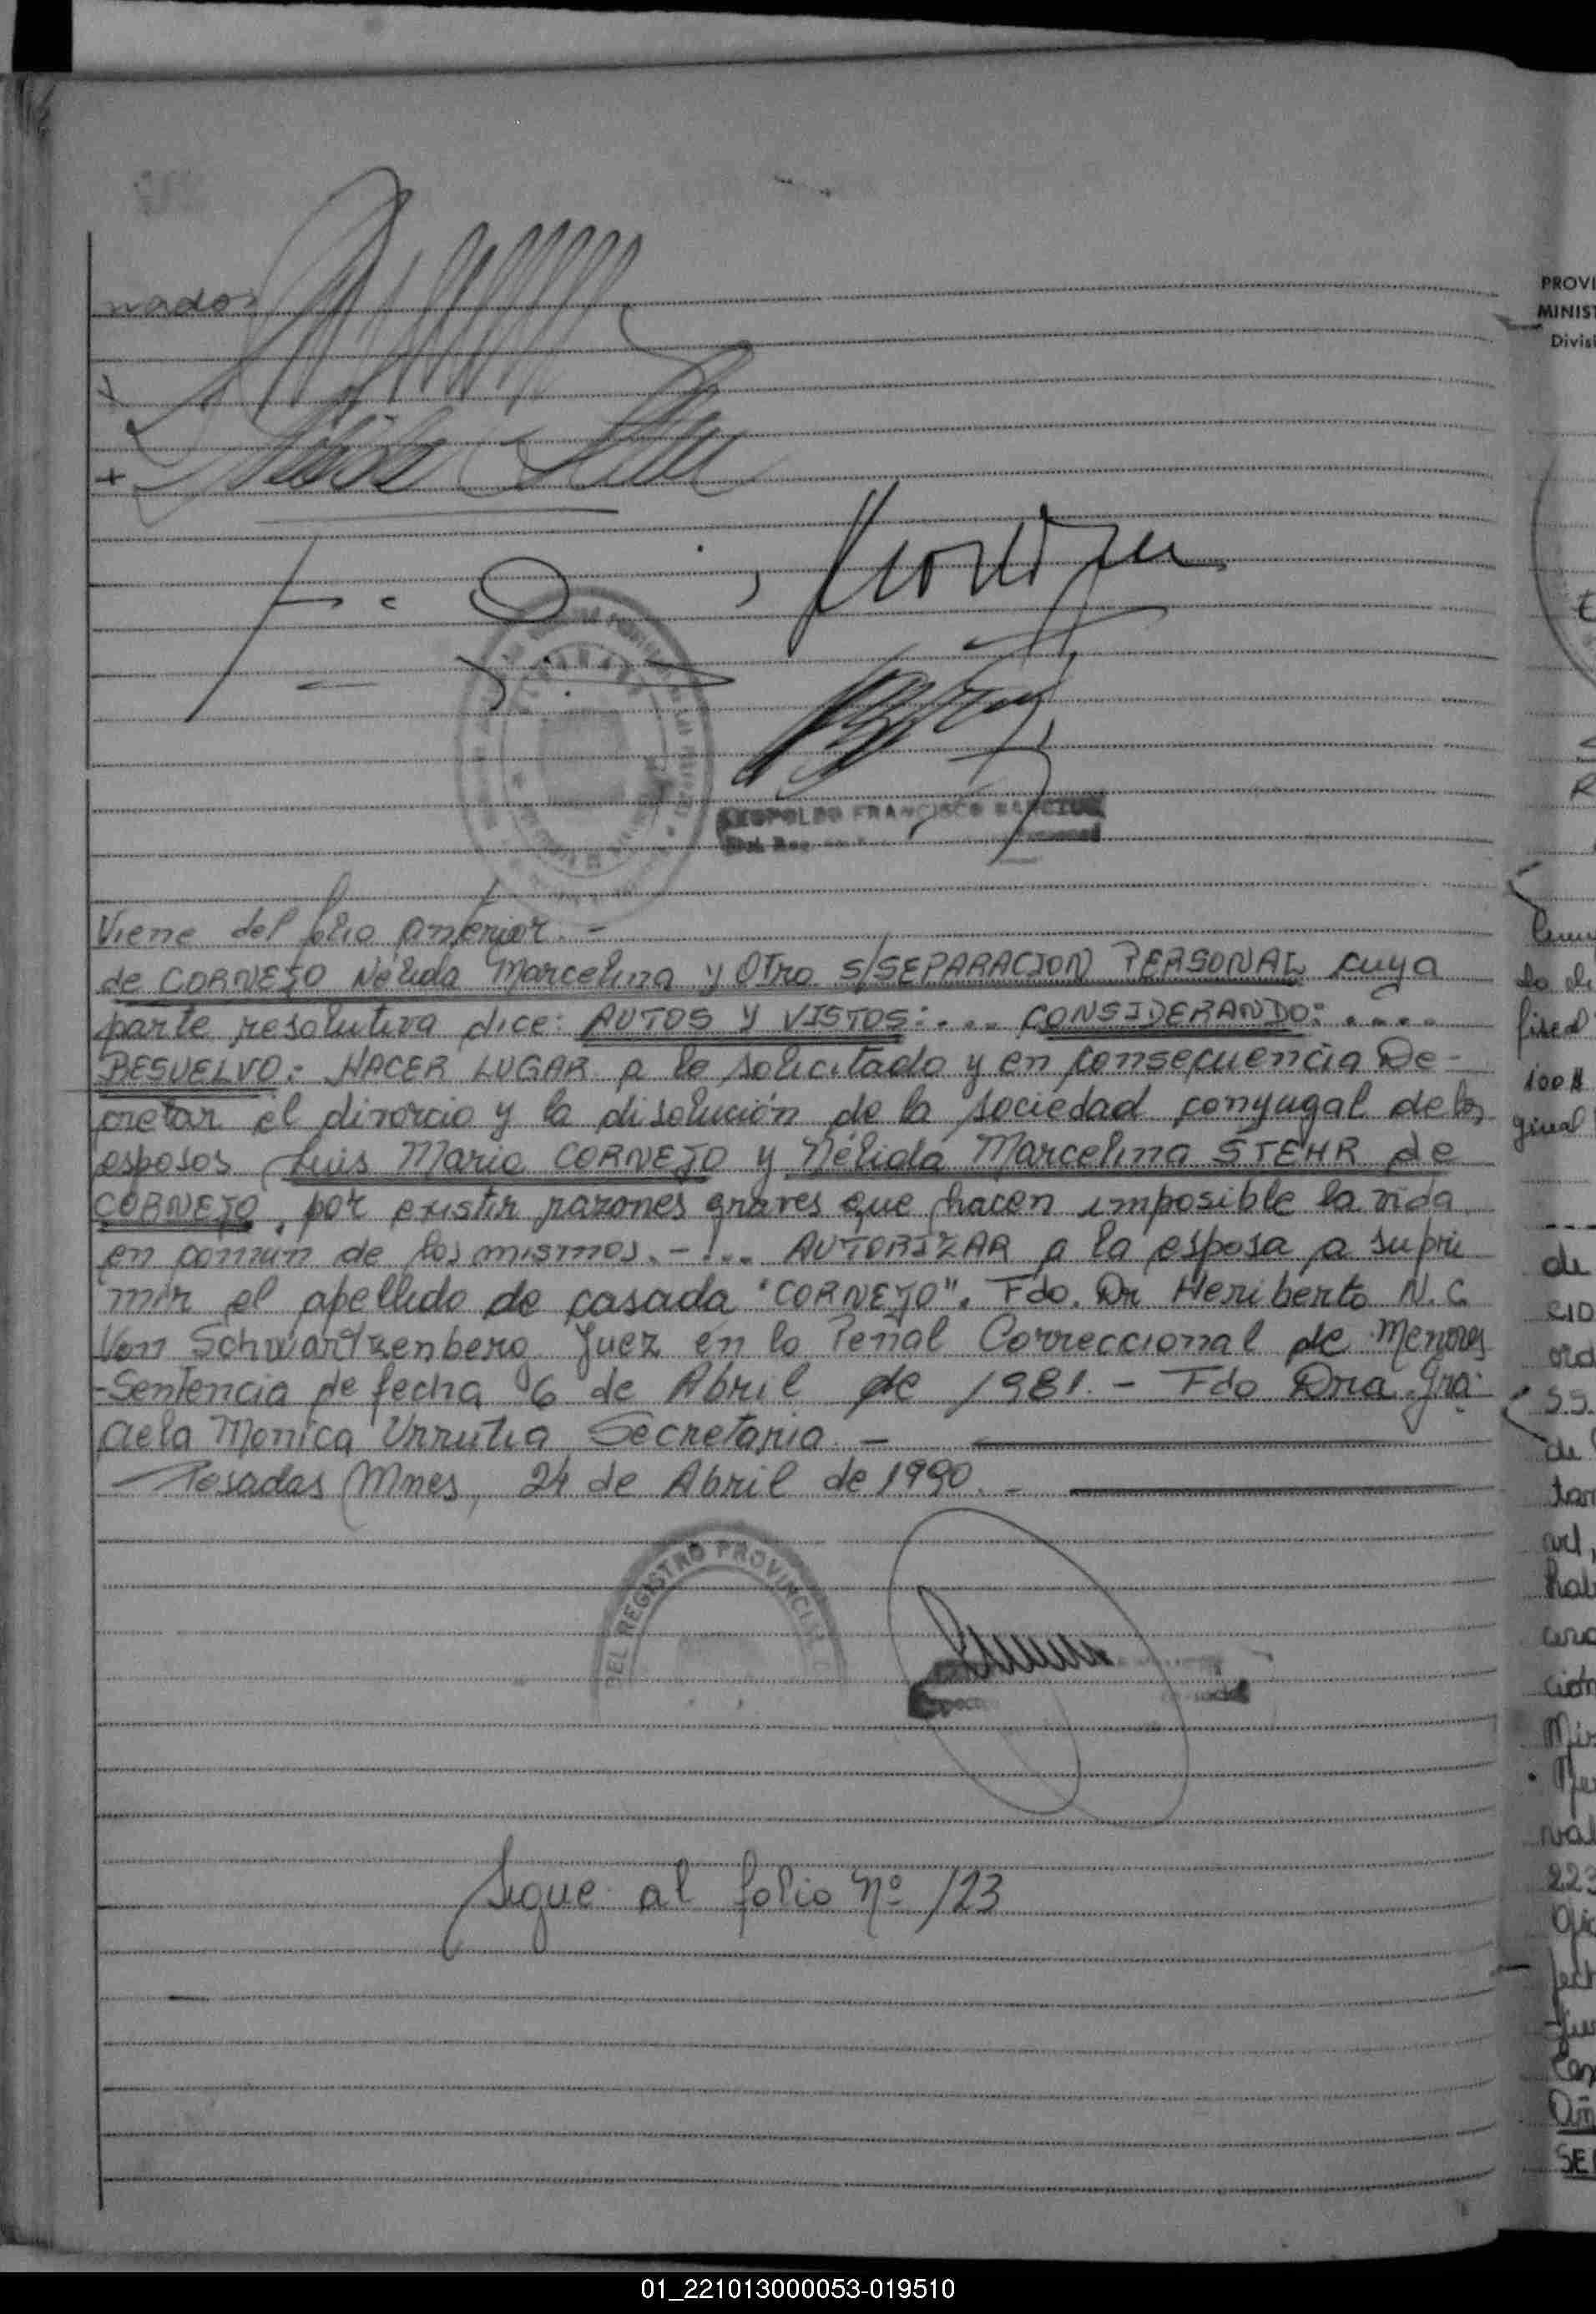 nados
LEOPOLDO FRANCISCO
Viene del folio anterior.-
de CORNEJO Nélida Marcelina y Otro s/SEPARACION PERSONAL cuya
parte resolutiva dice: AUTOS Y VISTOS:.... CONSIDERANDO:.....
RESUELVO:- HACER LUGAR a lo solicitado y en consecuencia De-
cretar el divorcio y la disolución de la sociedad conyugal de los
esposos Luis Mario CORNEJO y Nélida Marcelina STEHR de
CORNEJO, por existir razones graves que hacen imposible la vida
en comun de los mismos.-... AUTORIZAR a la esposa a supri
mir el apellido de casada "CORNEJO". Fdo. Dr Heriberto N.C.
Von Schwartzenberg Juez en lo Penal Correccional de Menores
-Sentencia de fecha 6 de Abril de 1981.- Fdo Dra Gra-
ciela Monica Urrutia Secretaria.-
-Posadas Mnes, 24 de Abril de 1990.-
DEL REGISTRO PROVINCIAL
Sigue al folio Nº 123
PROVI
MINIST
Divisi
100
ginal
de
val
223
SE
01_221013000053-019510